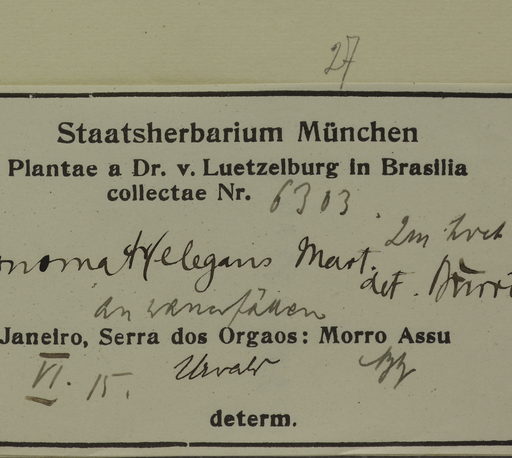 27
Staatsherbarium München
Plantae a Dr. v. Luetzelburg in Brasilia
collectae Nr. 6303
2m hoch
elegans Mart.
det.
an
Janeiro, Serra dos Orgaos: Morro Assu
VI. 15. Urwald
determ.